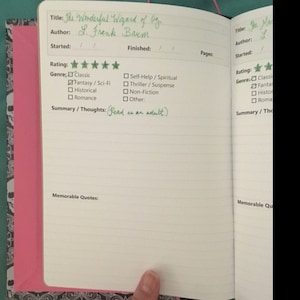 Title: The Wonderful Wizard of Oz
Author: L. Frank Baum
Started: / / Finished: / / Pages:
Rating: ★★★★★
Genre: ☑ Classic ☐ Self-Help / Spiritual
☑ Fantasy / Sci-Fi ☐ Thriller / Suspense
☐ Historical ☐ Non-Fiction
☐ Romance ☐ Other:
Summary / Thoughts: (Read as an adult)
Memorable Quotes:
Title: The
Author: L
Started:
Rating: ★★
Genre: Classic
Fantasy
Histo
Roman
Summary / Tho
Memorable Quo